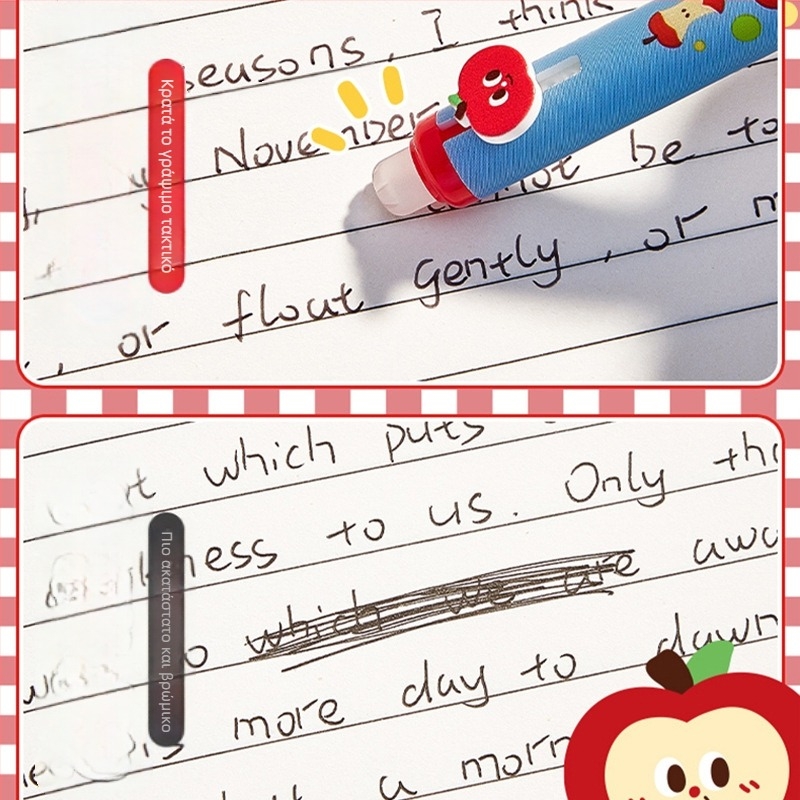 seasons, I think
November
not be to
, or float gently, or
Κρατά το γράψιμο τακτικό
which puts
ness to us. Only
which we are
more day to dawn
a morn
Πιο ακατάστατο και βρώμικο